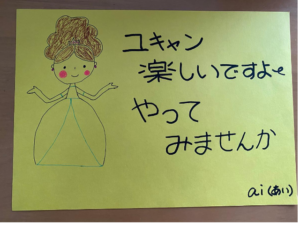 ユキャン
楽しいですよ〜
やって
みませんか
ai(あい)